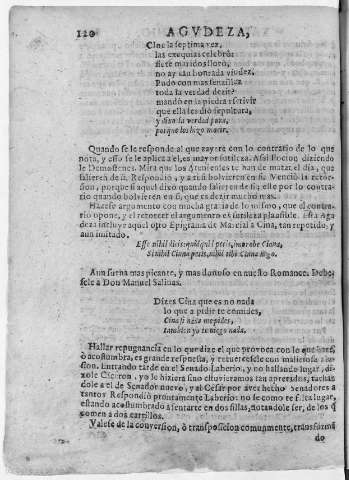 120 AGVDEZA,
Cloe la septima vez,
las exequias celebrò:
siete maridos llorò,
no ay tan honrada viudez.
Pudo con mas senzillez
toda la verdad dezir?
mandò en la piedra escrivir
que ella les diò sepultura,
y dixo la verdad pura,
porque los hizo morir.
Quando se le responde al que zayere con lo contrario de lo que
nota, y esso se le aplica a el, es mayor sutileza. Assi Focion diziendo
le Demostenes. Mira que los Atenienses te han de matar el dia, que
salieren de si. Respondiò, y a ti si bolvieren en si. Venciò la retor-
sion, porque si aquel dixo quando salieren de si; elle por lo contra-
rio quando bolvieren en si, que es dezir mucho mas.
Hazese argumento con mucha gracia de lo mismo, que el contra-
rio opone, y el retorcer el argumento es sutileza plausible. Esta Agu
deza incluye aquel otro Epigrama de Marcial a Cina, tan repetido, y
aun imitado.
Esse nihil dicis quidquid petis, improbe Cinna,
Si nihil Cinna petis, nihil tibi Cinna nego.
Aun suena mas picante, y mas donoso en nuestro Romance. Debe-
sele a Don Manuel Salinas.
Dizes Cina que es no nada
lo que a pidir te comides,
Cina si nada me pides,
tambien yo te niego nada.
Hallar repugnancia en lo que dize el que provoca con lo que hazes,
ò acostumbra, es grande respuesta, y retuercesele con maliciosa alu-
sion. Entrando tarde en el Senado Laberio, y no hallando lugar, di-
xole Ciceron, yo le hiziera sino estuvieramos tan apretados, tachan
dole a el de Senador nuevo, y al César por aver hecho Senadores a
tantos Respondiò prontamente Laberio: no se como te falta lugar,
estando acostumbrado a sentarte en dos sillas, notandole ser, de los q
comen a dos carrillos.
Valese de la conversion, ò transposicion comunmente, transforman
do